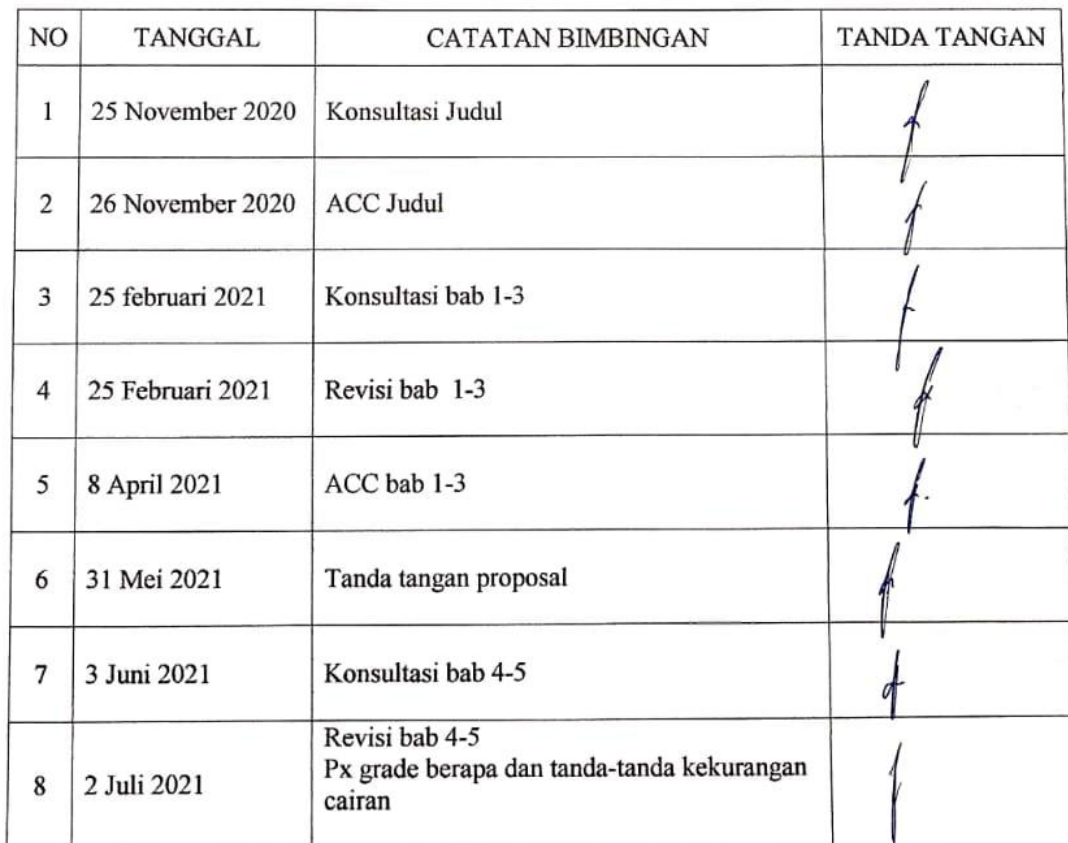 NO TANGGAL CATATAN BIMBINGAN TANDA TANGAN
1 25 November 2020 Konsultasi Judul
2 26 November 2020 ACC Judul
3 25 februari 2021 Konsultasi bab 1-3
4 25 Februari 2021 Revisi bab 1-3
5 8 April 2021 ACC bab 1-3
6 31 Mei 2021 Tanda tangan proposal
7 3 Juni 2021 Konsultasi bab 4-5
8 2 Juli 2021 Revisi bab 4-5
Px grade berapa dan tanda-tanda kekurangan
cairan